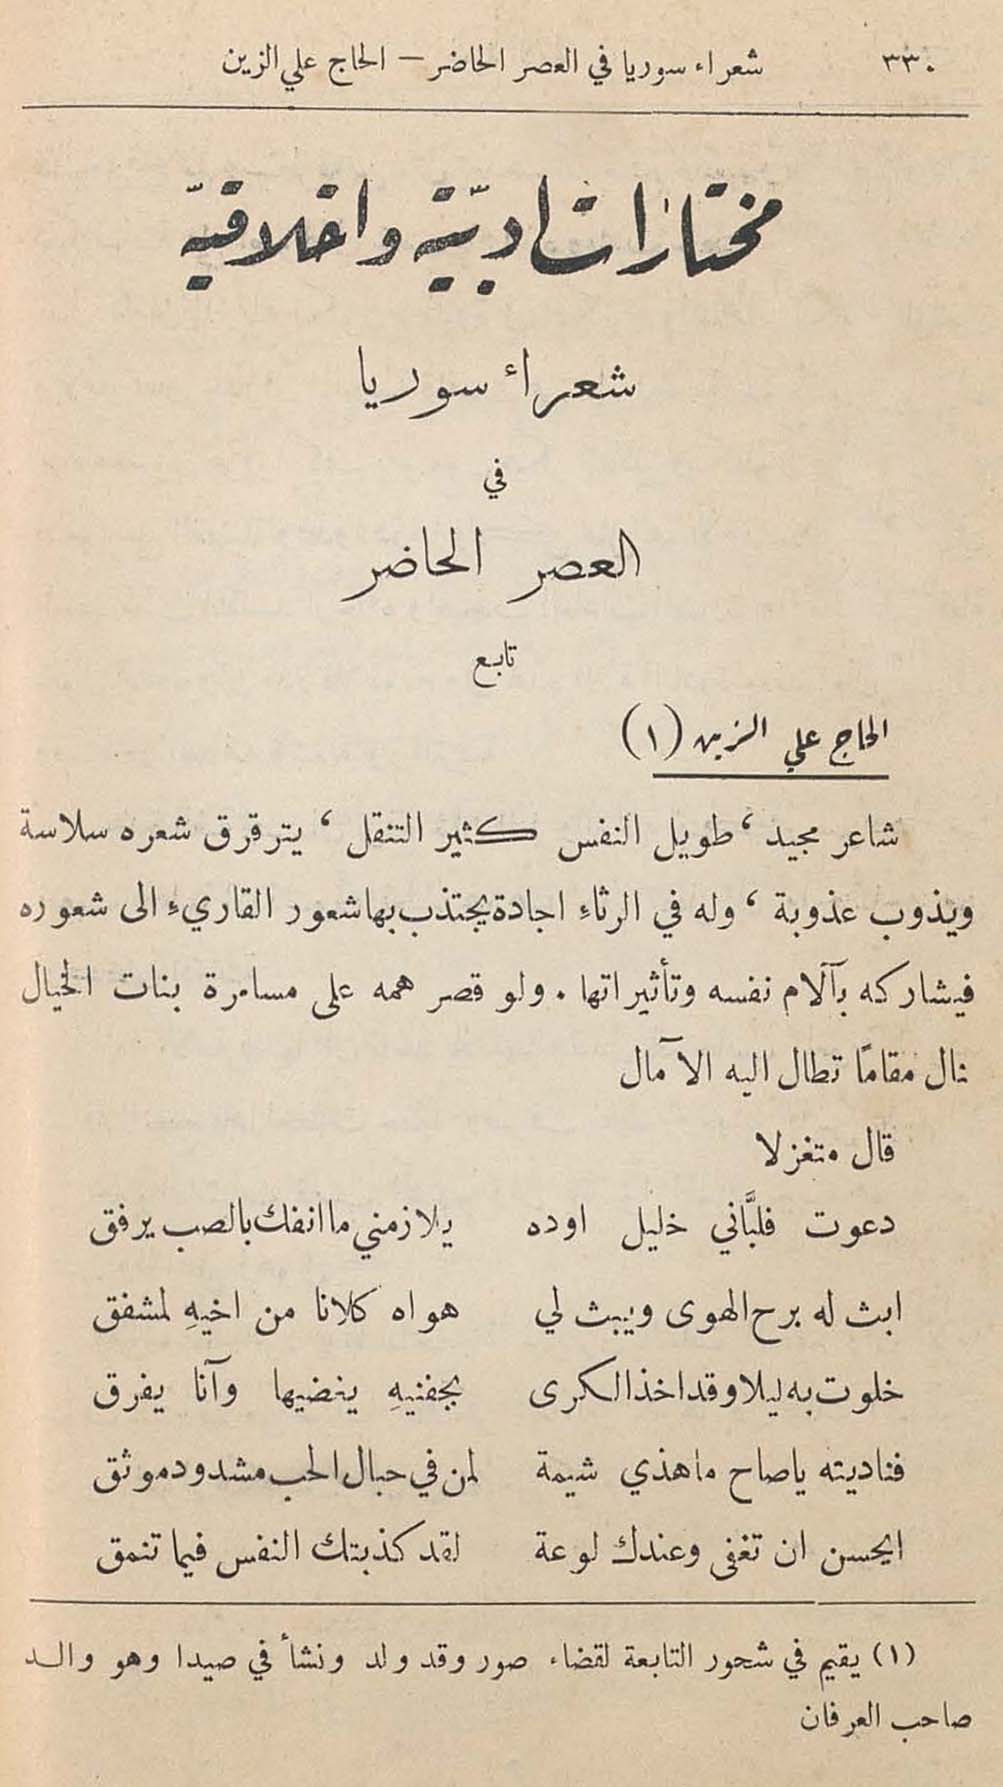 ٣٣٠ شعراء سوريا في العصر الحاضر — الحاج علي الزين
مختارات ادبيّة واخلاقيّة
شعراء سوريا
في
العصر الحاضر
تابع
الحاج علي الزين (١)
شاعر مجيد ، طويل النفس كثير التنقل ، يترقرق شعره سلاسة
ويذوب عذوبة ، وله في الرثاءِ اجادة يجتذب بها شعور القاريءِ الى شعوره
فيشاركه بآلام نفسه وتأثيراتها . ولو قصر همه على مسامرة بنات الخيال
نال مقامًا تطال اليه الآمال
قال متغزلا
دعوت فلبَّاني خليل اوده يلازمني ما انفك بالصب يرفق
ابث له برح الهوى ويبث لي هواه كلانا من اخيهِ لمشفق
خلوت به ليلا وقد اخذ الكرى بجفنيهِ يغضيها وآنا يفرق
فناديته ياصاح ماهذي شيمة لمن في حبال الحب مشدود موثق
ايحسن ان تغفى وعندك لوعة لقد كذبتك النفس فيما تنمق
(١) يقيم في شحور التابعة لقضاء صور وقد ولد ونشأ في صيدا وهو والد
صاحب العرفان